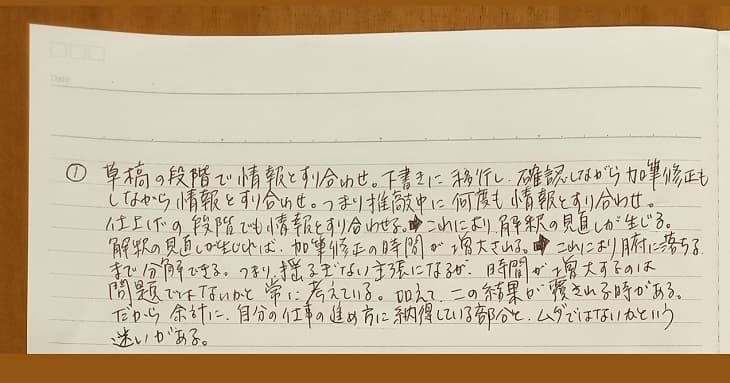 Date
① 草稿の段階で情報とすり合わせ。下書きに移行し、確認しながら加筆修正も
しながら情報とすり合わせ。つまり推敲中に何度も情報とすり合わせ。
仕上げの段階でも情報とすり合わせる。➡これにより解釈の見直しが生じる。
解釈の見直しが生じれば、加筆修正の時間が増大される。➡これにより腑に落ちる
まで分解できる。つまり、揺るぎない主張になるが、時間が増大するのは
問題ではないかと常に考えている。加えて、この結果が覆される時がある。
だから余計に、自分の仕事の進め方に納得している部分と、ムダではないかという
迷いがある。